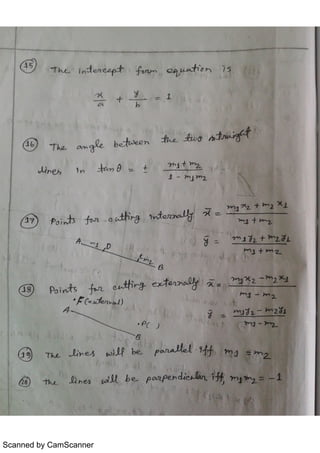 15 The intercept form equation is
x/a + y/b = 1
16 The angle between the two straight
lines is tan θ = ± (m1 + m2)/(1 - m1m2)
17 Points for cutting internally x̄ = (m1x2 + m2x1)/(m1 + m2)
ȳ = (m1y2 + m2y1)/(m1 + m2)
A m1 P m2 B
18 Points for cutting externally x̄ = (m1x2 - m2x1)/(m1 - m2)
(external)
A .P( ) ȳ = (m1y2 - m2y1)/(m1 - m2)
B
19 The lines will be parallel iff m1 = m2
20 The lines will be perpendicular iff, m1m2 = -1
Scanned by CamScanner